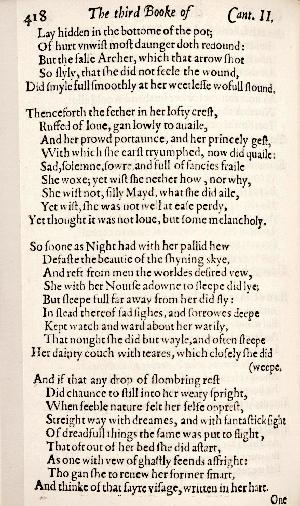 418 The third Booke of Cant. II.
Lay hidden in the bottome of the pot;
Of hurt vnwist most daunger doth redound:
But the false Archer, which that arrow shot
So slyly, that she did not feele the wound,
Did smyle full smoothly at her weetlesse wofull stound.
Thenceforth the fether in her lofty crest,
Ruffed of loue, gan lowly to auaile,
And her prowd portaunce, and her princely gest,
With which she earst tryumphed, now did quaile:
Sad, solemne, sowre, and full of fancies fraile
She woxe; yet wist she nether how, nor why,
She wist not, silly Mayd, what she did aile,
Yet wist, she was not well at ease perdy,
Yet thought it was not loue, but some melancholy.
So soone as Night had with her pallid hew
Defaste the beautie of the shyning skye,
And reft from men the worldes desired vew,
She with her Nourse adowne to sleepe did lye;
But sleepe full far away from her did fly:
In stead thereof sad sighes, and sorrowes deepe
Kept watch and ward about her warily,
That nought she did but wayle, and often steepe
Her dainty couch with teares, which closely she did
(weepe.
And if that any drop of slombring rest
Did chaunce to still into her weary spright,
When feeble nature felt her selfe opprest,
Streight way with dreames, and with fantastick sight
Of dreadfull things the same was put to flight,
That oft out of her bed she did astart,
As one with vew of ghastly feends affright:
Tho gan she to renew her former smart,
And thinke of that fayre visage, written in her hart.
One